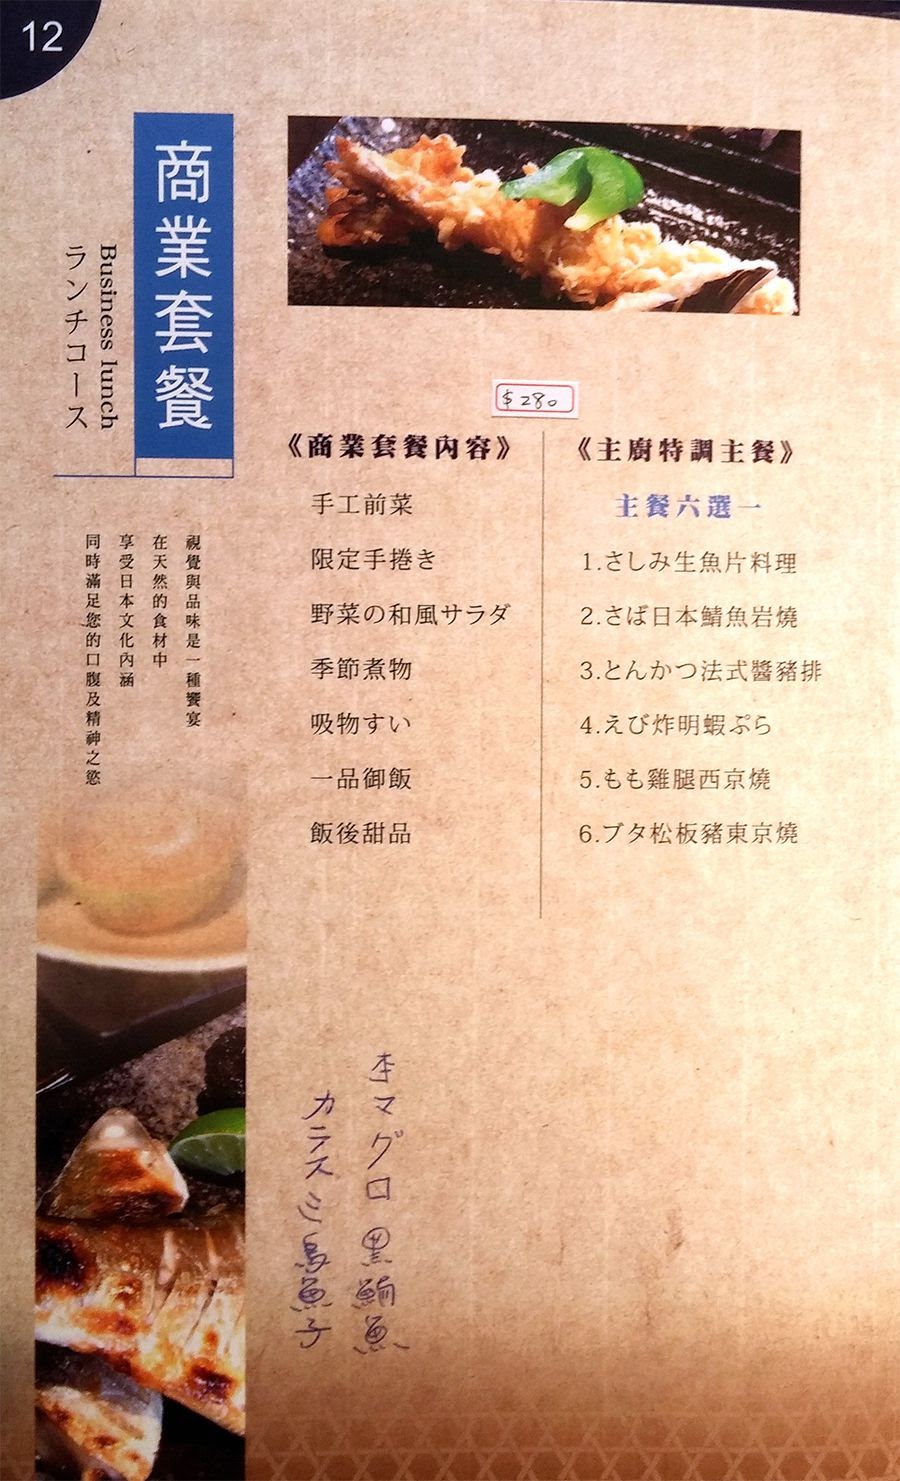 12
商業套餐
Business lunch
ランチコース
視覺與品味是一種饗宴
在天然的食材中
享受日本文化內涵
同時滿足您的口腹及精神之慾
$280
《商業套餐內容》
手工前菜
限定手捲き
野菜の和風サラダ
季節煮物
吸物すい
一品御飯
飯後甜品
《主廚特調主餐》
主餐六選一
1.さしみ生魚片料理
2.さば日本鯖魚岩燒
3.とんかつ法式醬豬排
4.えび炸明蝦ぷら
5.もも雞腿西京燒
6.ブタ松板豬東京燒
本マグロ 黑鮪魚
カラスミ烏魚子